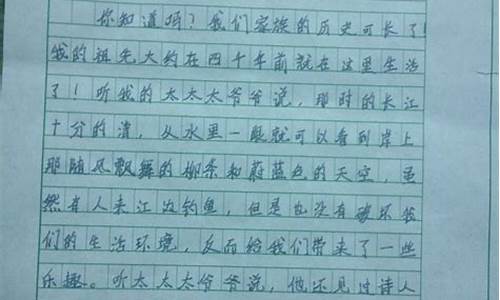 你知道吗？我们家族的历史可长了！
我的祖先大约在四千年前就在这里生活
了！听我的太太太爷爷说，那时的长江
十分的清，从水里一眼就可以看到岸上
那随风飘舞的柳条和蔚蓝色的天空，虽
然有人来江边钓鱼，但是也没有破坏我
们的生活环境，反而给我们带来了一些
乐趣。听太太太爷爷说，他还见过诗人